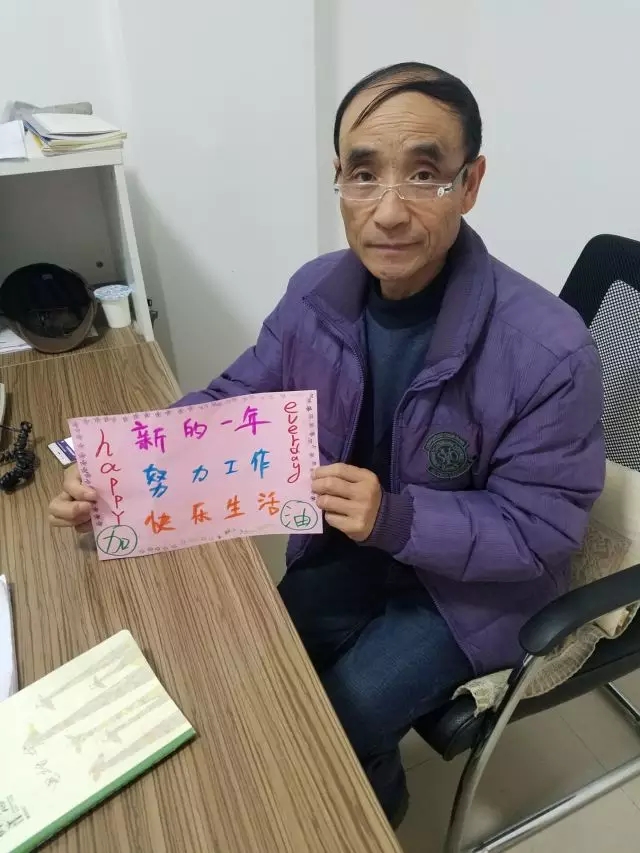 新的一年
努力工作
快乐生活
happy
everyday
加
油